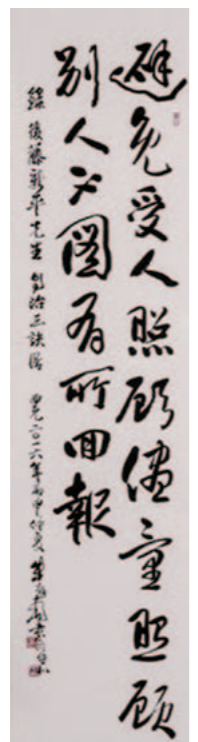 避免受人照顾儘量照顾
别人不图有所回報
錄後藤新平先生自治三訣 西元二〇一六年丙申仲夏